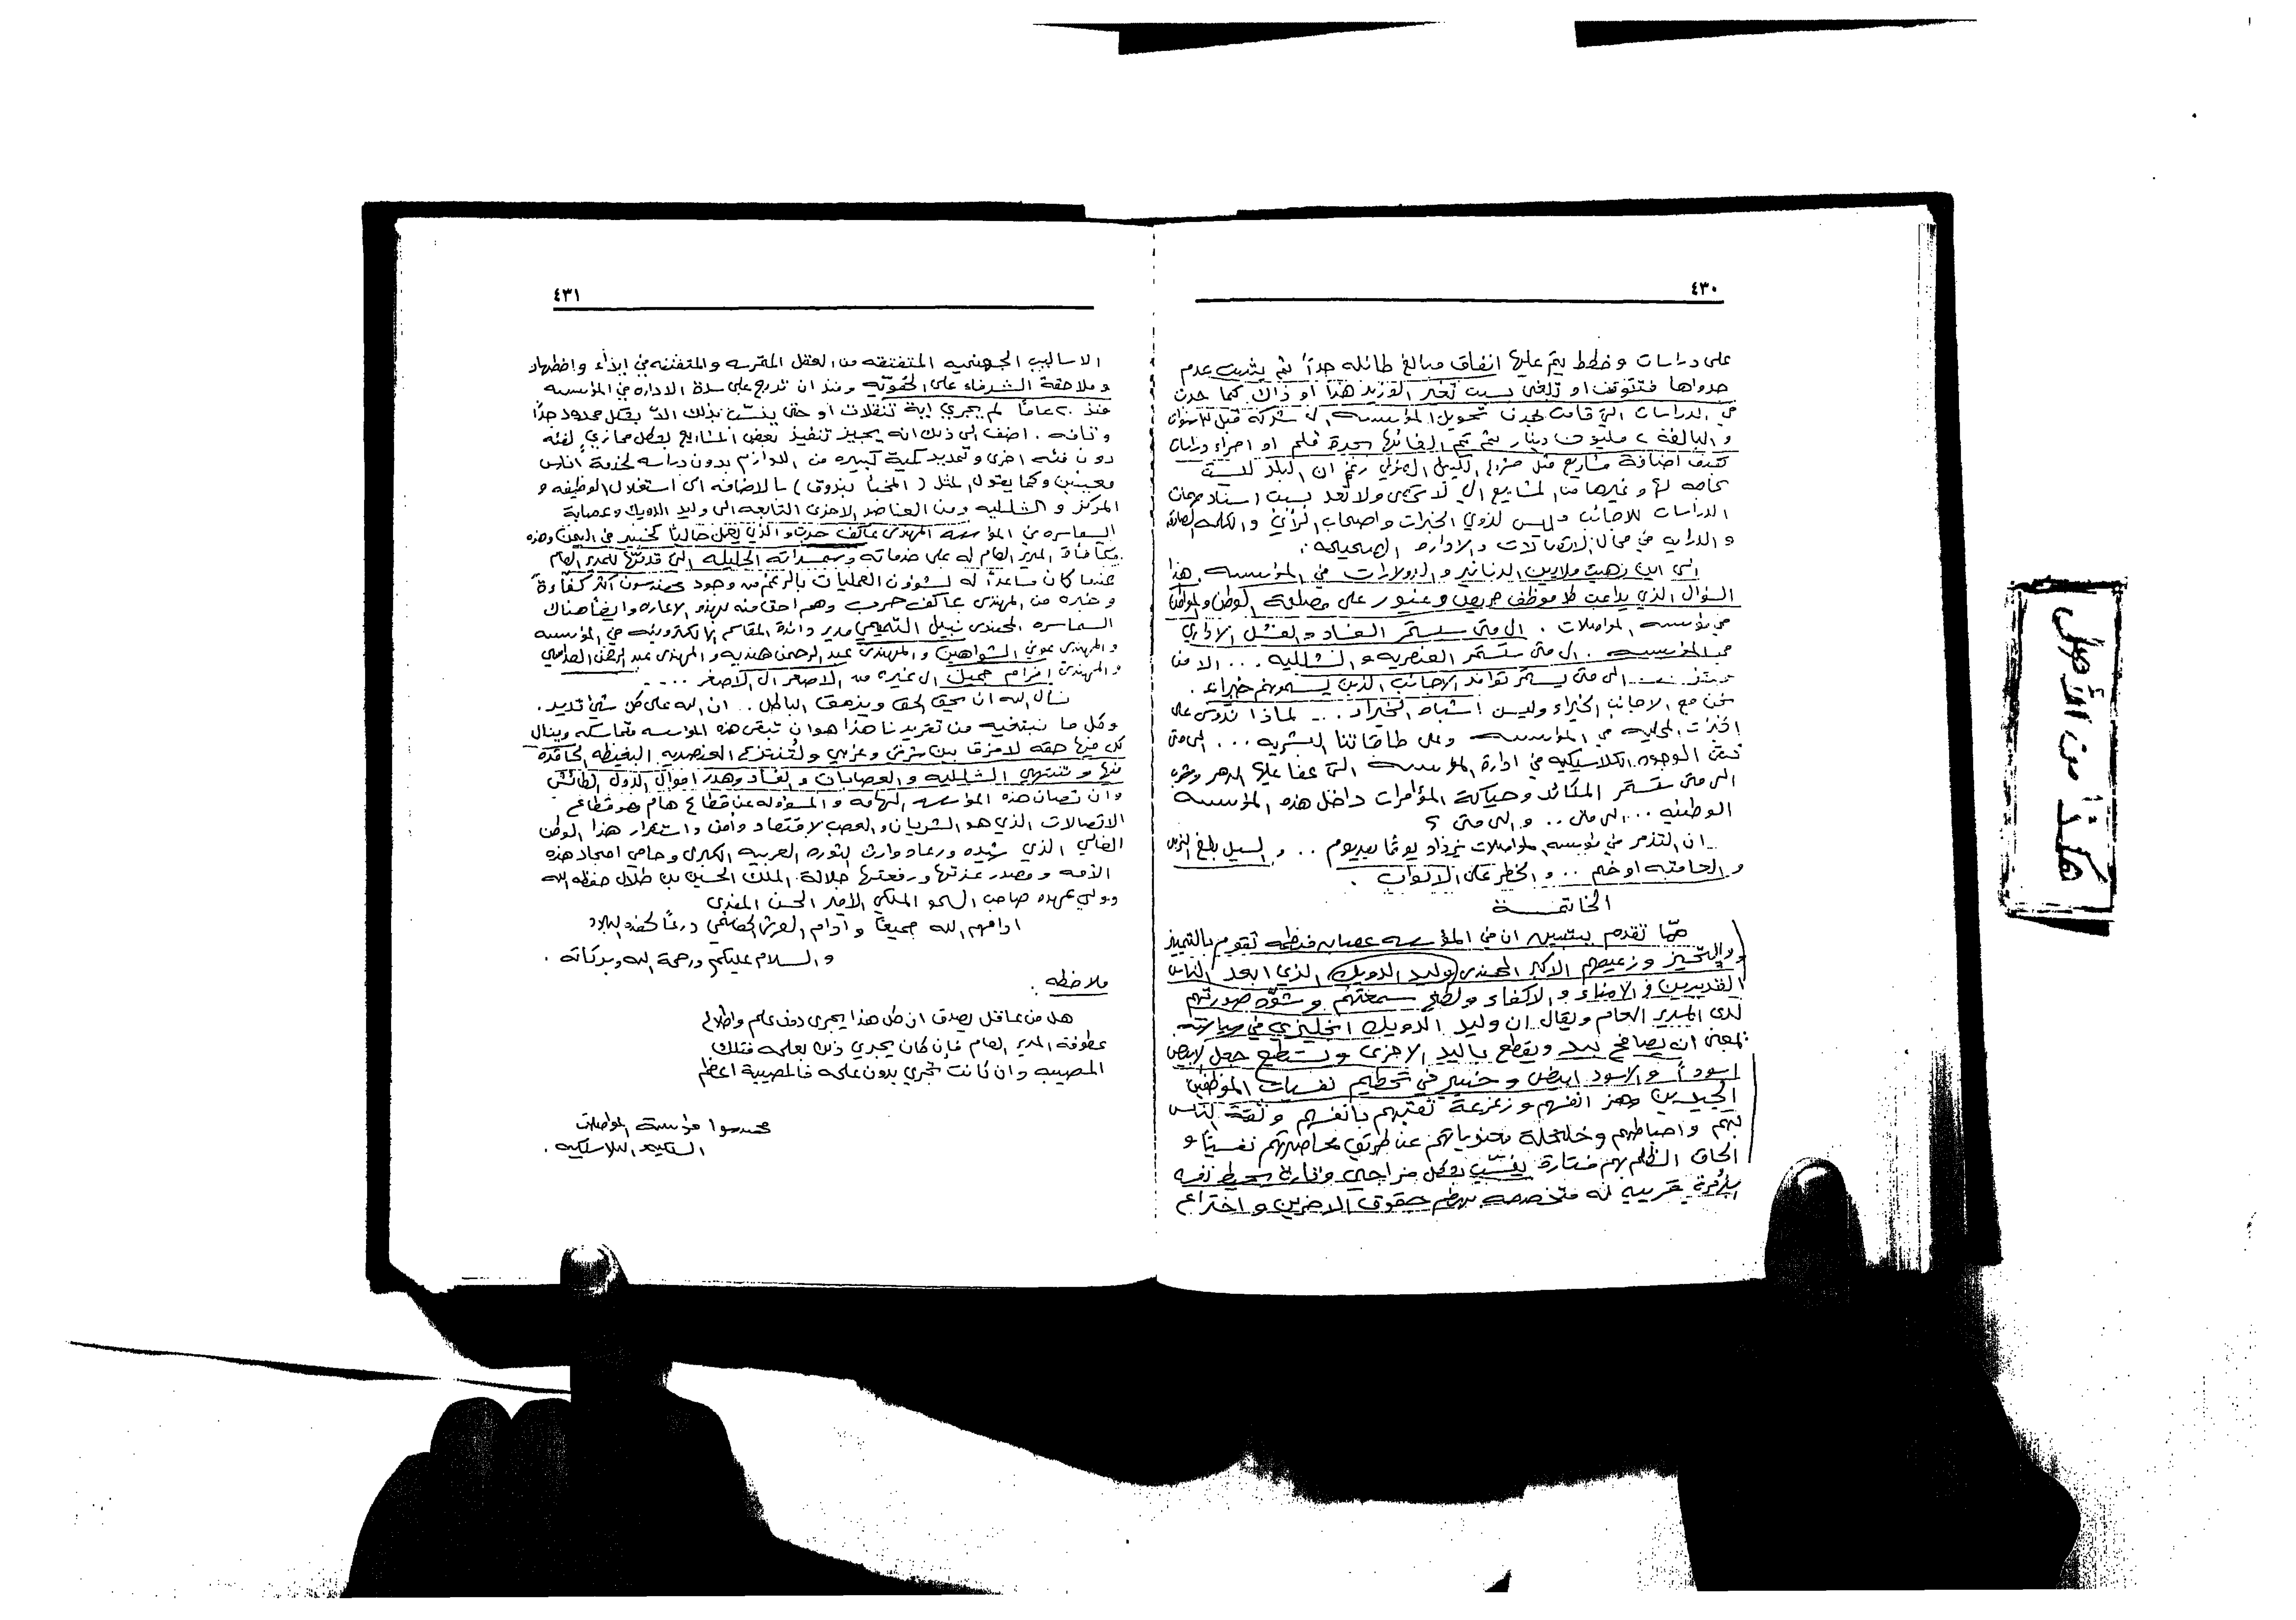 ٤٣٠
على دراسات وخطط يتم عليها انفاق مبالغ طائله جداً ثم يثبت عدم
جدواها فتتوقف او تلغى بسبب تغير الوزير هذا او ذاك كما حدث
في الدراسات التي قامت بهدف تحويل المؤسسه الى شركة قبل ٣ سنوات
و البالغة ٢ مليون دينار ثم تم الغائها بجرة قلم او اجراء دراسات
بهدف اضافة مشاريع مثل الكيبل المنزلي رغم ان البلد ليست
بحاجه لها وغيرها من المشاريع التي لا تحصى ولا تعد بسبب اسناد مهمات
الدراسات للاجانب وليس لذوي الخبرات واصحاب الرأي والكلمه الصادقه
و الدرايه في مجال الاتصالات والاداره الصحيحه .
الى اين ذهبت ملايين الدنانير والدولارات في المؤسسه هذا
السؤال الذي يداعب كل موظف حريص وغيور على مصلحة الوطن والمواطن
في مؤسسه المواصلات . الى متى سيستمر الفساد والفشل الاداري
في المؤسسه . الى متى ستستمر العنصريه والشلليه ... الا من
الى متى يستمر توافد الاجانب الذين يسمونهم خبراء .
نحن مع الاجانب الخبراء وليس اشباه الخبراء ... لماذا ندوس على
الخبرات المحليه في المؤسسه وعلى طاقاتنا البشريه ... الى متى
تبقى الوجوه الكلاسيكيه في ادارة المؤسسة التي عفا عليها الدهر وشرب
الى متى ستستمر المكائد وحياكة المؤامرات داخل هذه المؤسسه
الوطنيه ... الى متى .. و الى متى ؟
ان التذمر في مؤسسه المواصلات يزداد يومًا بعد يوم .. و السيل بلغ الزبى
و الحاميه او خلم .. و الخطر على الابواب .
الخاتمــة
ممّا تقدم يتبين ان في المؤسسه عصابه منظمه تقوم بالتمييز
والتحيز وزعيمهم الاكبر المهندس وليد الدويك الذي ابعد الناس
القديرين والامناء والاكفاء ولطخ سمعتهم وشوّه صورتهم
لدى المدير العام ويقال ان وليد الدويك انجليزي في
بمعنى ان يصافح بيد ويقطع باليد الاخرى ويستطيع جعل الابيض
اسوداً والاسود ابيض وخبير في تحطيم نفسيات الموظفين
الجيدين وهز انفسهم وزعزعة ثقتهم بأنفسهم وثقة الناس
بهم واحباطهم وخلخلة معنوياتهم عن طريق محاصرتهم نفسياً و
الحاق الظلم بهم فتارة ينسّب بشكل مزاجي وتارة يحيط نفسه
بزمرة قريبه له متخصصه بهضم حقوق الاخرين واختراع
٤٣١
الاساليب الجهنميه المتفتقه من العقل المقرسه والمتفننه في ايذاء واضطهاد
وملاحقة الشرفاء على الحقوته ومنذ ان تدرج على سدة الاداره في المؤسسه
منذ ٢٠ عاماً لم يجري اية تنقلات او حتى ينسّب بذلك الا بشكل محدود جداً
وتافه . اضف الى ذلك انه يجيز تنفيذ بعض المشاريع بشكل مجازي لفئه
دون فئه اخرى وتمديد كمية كبيره من اللوازم بدون دراسه لخدمة اناس
معينين وكما يقول المثل ( المخبا بندوق ) بالاضافه الى استغلال الوظيفه و
المركز والشلليه ومن العناصر الاخرى التابعه الى وليد الدويك وعصابة
السماسره في المؤسسه المهندس عاكف حرب والذي يعمل حالياً كخبير في اليمن وهذه
مكافأة المدير العام له على خدماته الجليله التي قدمتها للمدير العام
عندما كان مساعداً له لشؤون العمليات بالرغم من وجود مهندسون اكثر كفاءة
وخبره من المهندس عاكف حرب وهم احق منه بهذه الاعاره وايضاً هناك
السماسره المهندس نبيل التميمي مدير دائرة المقاسم الالكترونيه في المؤسسه
والمهندس عوني الشواهين والمهندس عبد الرحمن هنديه والمهندس عبد الرحمن
والمهندس اكرام جميل الى غيره من الاصغر الى الاصغر ....
نسأل الله ان يحق الحق ويزهق الباطل .. ان الله على كل شيء قدير .
وكل ما نبتغيه من تقريرنا هذا هو ان تبقى هذه المؤسسه متماسكه وينال
كل منها حقه لا فرق بين شرقي وغربي ولتنتزع العنصريه البغيضه الحاقدة
منها وتنتهي الشلليه والعصابات والفساد وهدر اموال الدوله الطائش
وان تصان هذه المؤسسه الهامه والمسؤوله عن قطاع هام وهو قطاع
الاتصالات الذي هو الشريان والعصب لاقتصاد وامن واستقرار هذا الوطن
الغالي الذي شيّده ورعاه وارث الثوره العربيه الكبرى وحامي امجاد هذه
الأمه ومصدر عزتها ورفعتها جلالة الملك الحسين بن طلال حفظه الله
وولي عهده صاحب السمو الملكي الامير الحسن المفدى
ادامهم الله جميعاً وأدام العرش الهاشمي درعاً لهذه البلاد
و السلام عليكم ورحمة الله وبركاته .
ملاحظه :
هل من عاقل يصدق ان كل هذا يجري دون علم واطلاع
عطوفة المدير العام فإن كان يجري ذلك بعلمه فتلك
المصيبه وان كانت تجري بدون علمه فالمصيبة اعظم
مهندسوا مؤسسة المواصلات
السلكيه واللاسلكيه .
هكذا من الأصل